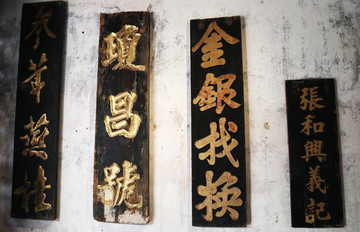 參茸燕桂
瓊昌號
金銀找換
張和興義記